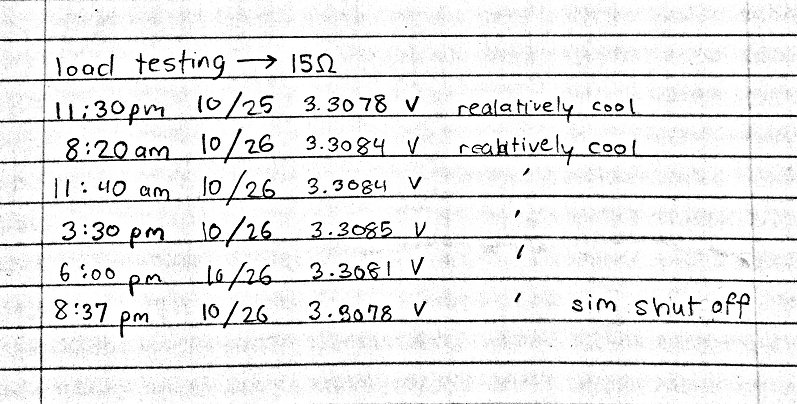 load testing → 15Ω
11:30pm 10/25 3.3078 V realatively cool
8:20 am 10/26 3.3084 V realatively cool
11:40 am 10/26 3.3084 V '
3:30 pm 10/26 3.3085 V '
6:00 pm 10/26 3.3081 V '
8:37 pm 10/26 3.3078 V ' sim shut off